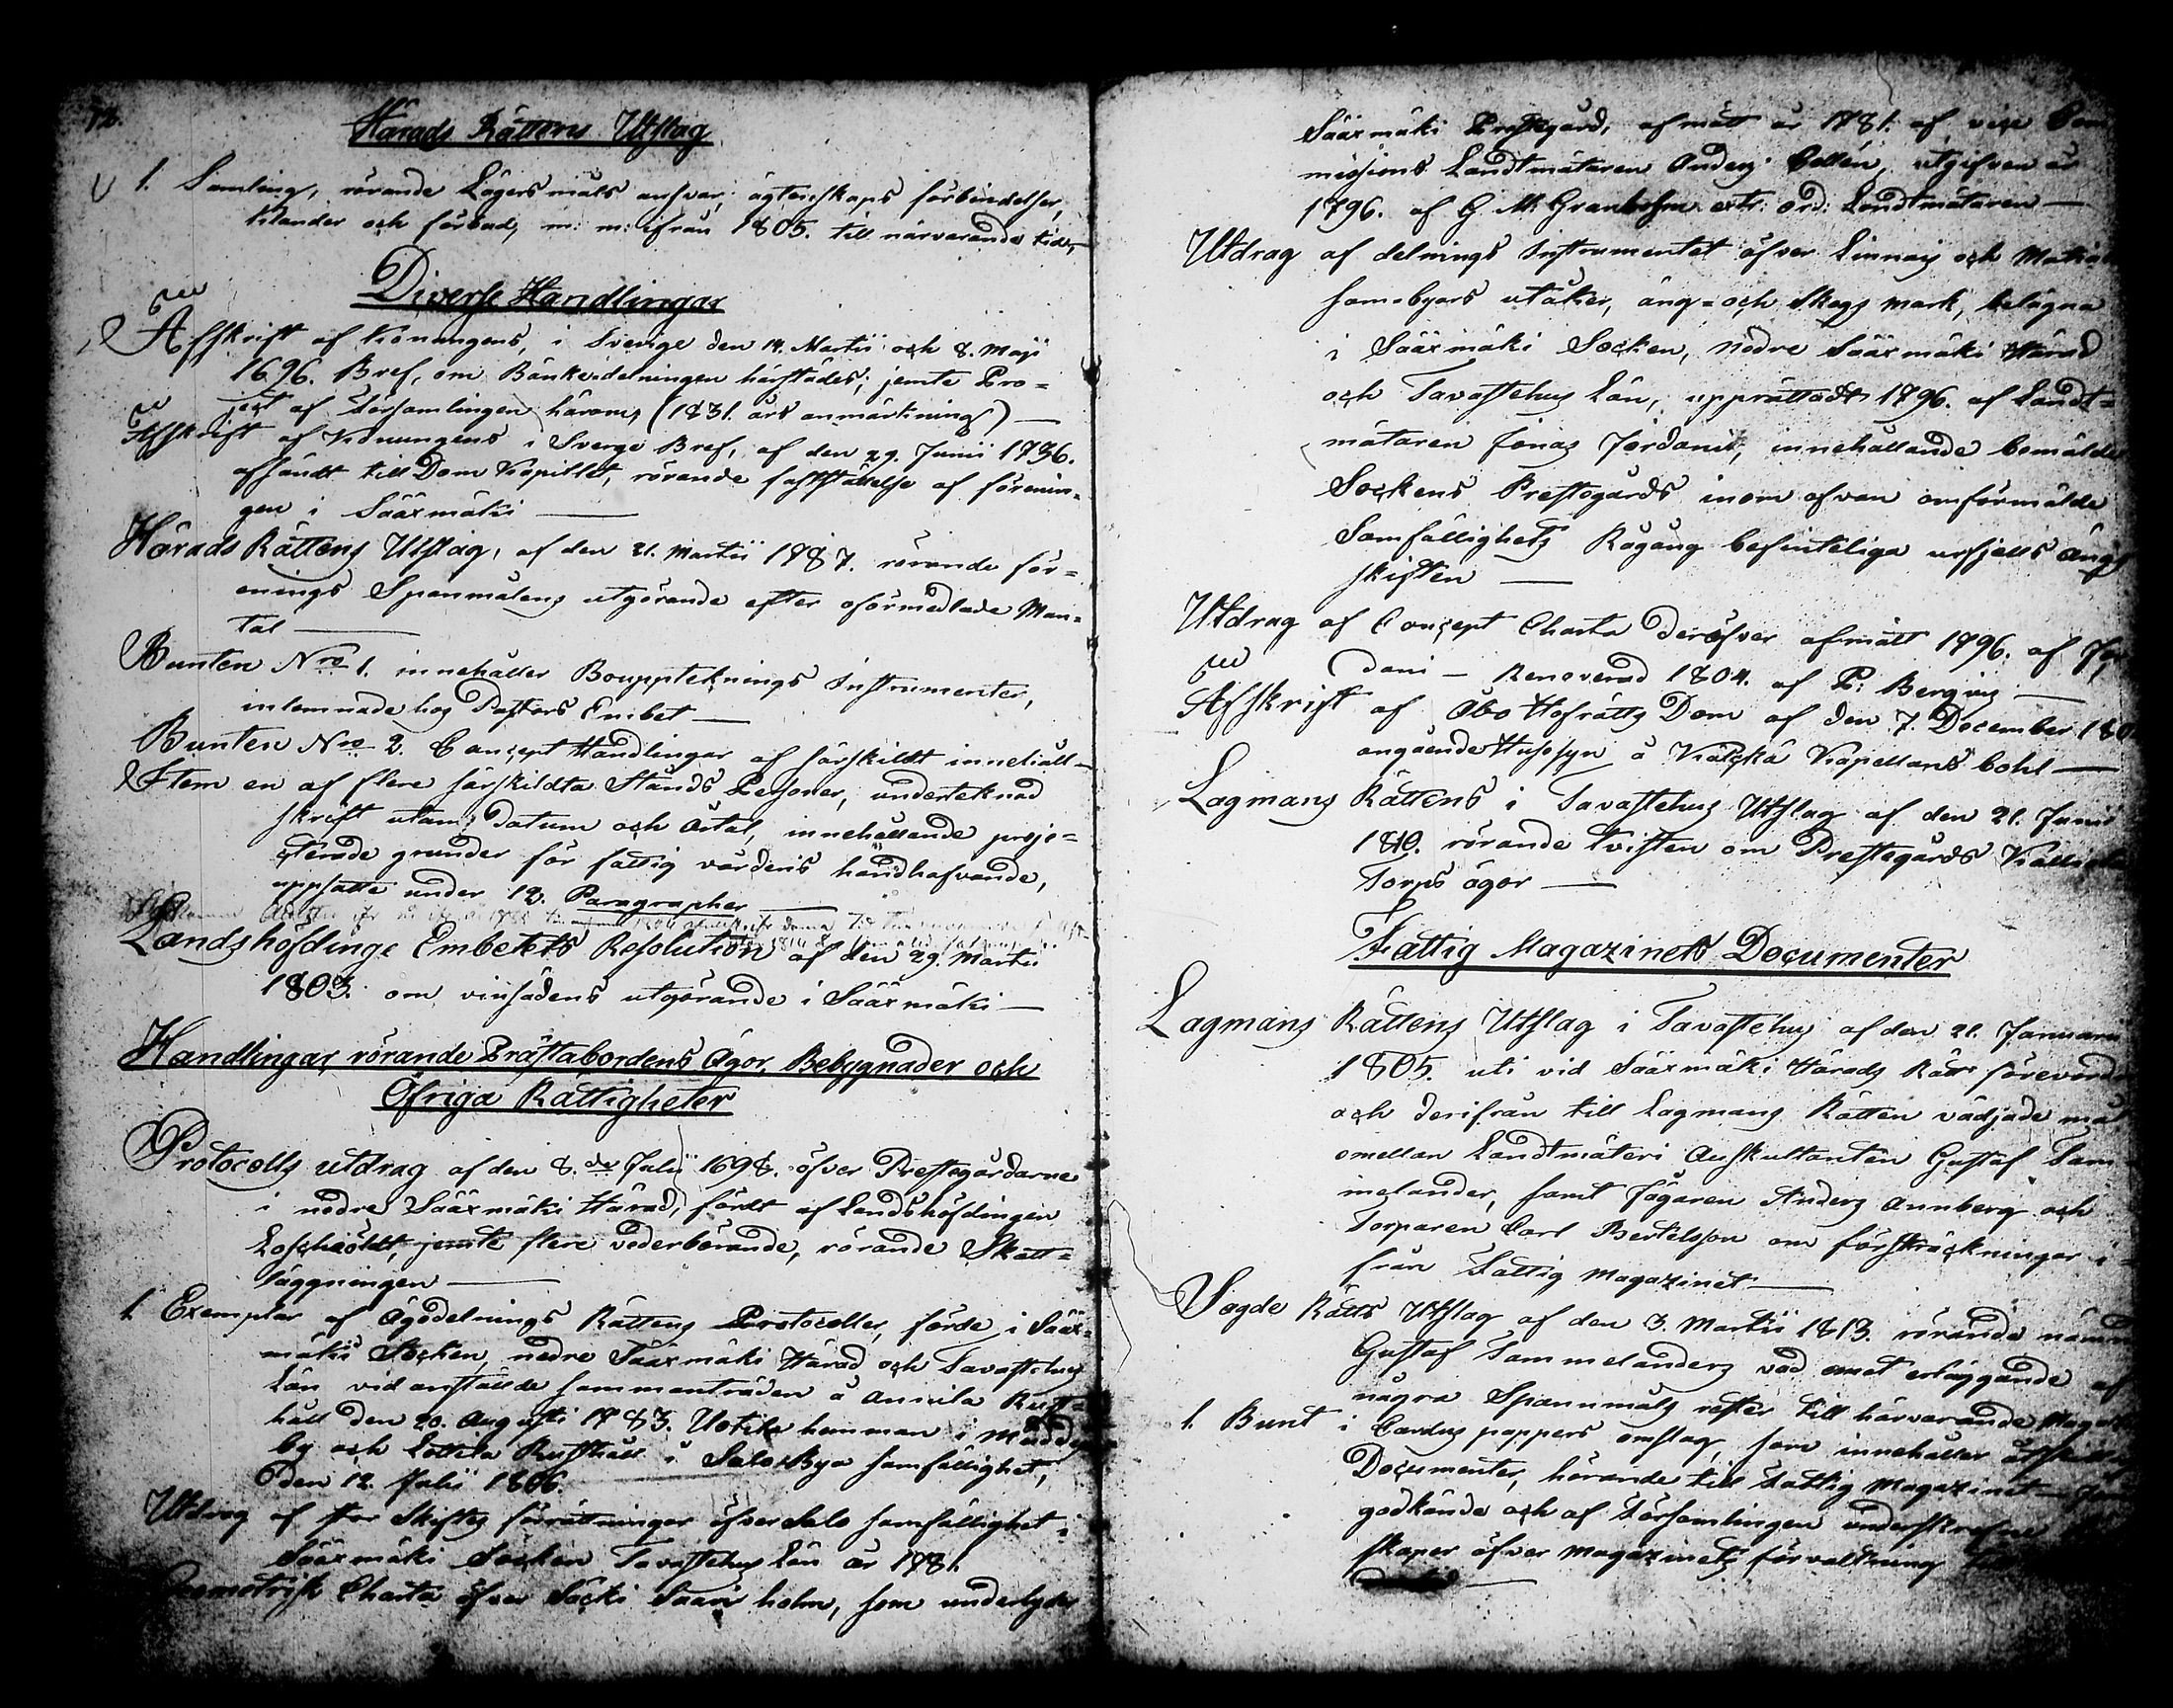 72.
Härads Rättens Utslag
1. Samling, rörande Lägersmåls ansvar, ägtenskaps förbindelser,
klander och förbud, m: m: ifrån 1805. till närvarande tider,
Diverse Handlingar
Afskrift af Konungens, i Sverige den 14. Martii och 8. Maji
1696. Bref, om Bänkedelningen härstädes; jemte Pro=
ject af Församlingen härom, (1831. års anmärkning) —
Afskrift af Konungens i Sverge Bref, af den 29. Junii 1736.
afsändt till Dom Kapitlet, rörande fastställelse af förenin=
gen i Sääxmäki —
Härads Rättens Utslag, af den 21. Martii 1787. rörande för=
enings Spanmålens utgörande efter oförmedlade Man=
tal —
Bunten Nro 1. innehåller Bouppteknings Instrumenter,
inlemnade hos Pastors Embet —
Bunten Nro 2. Concept Handlingar af särskildt innehåll —
Item en af flere särskildta Stånds Personer, undertecknad
skrift utan Datum och Årtal, innehållande proje=
cterade grunder för fattig vårdens handhafvande,
uppsatte under 12. Paragrapher —
Landshöfdinge Embetets Resolution af den 29. Martii
1803. om vinsädens utgörande i Sääxmäki —
Handlingar, rörande Prästabordens Ägor, Bebygnader och
Öfriga Rättigheter
Protocolls utdrag af den 8.de Julii 1698. öfver Prestegårdarne
i nedre Sääxmäki Härad, fördt af Landshöfdingen
jemte flere vederbörande, rörande Skatt=
läggningen —
1. Exemplar af Ägodelnings Rättens Protocoller, förde i Sääx=
mäki Socken, nedre Sääxmäki Härad och Tavastehus
Län vid anstälde sammanträden å Annila Rust=
håll den 20. Augusti 1783. Uotila hemman i
by och Lottila Rusthåll i Salo Bya samfällighet,
Den 12. Julii 1806.
Utdrag af Stor Skiftes förrätningar öfver Salo samfällighet
Sääxmäki Socken Tavastehus Län år 1781.
Geometrisk Charta öfver Säcki Saari holm, som underlyder
Sääxmäki Prestegård, afmätt år 1781. af vice Com
missions Landtmätaren Anders Collén, utgifven år
1796. af G. M. Granholm extr: ord: Landtmätaren —
Utdrag af delnings Instrumentet öfver Linnais och
samebyars utåker, äng= och Skogs mark, belägna
i Sääxmäki Socken, Nedre Sääxmäki Härad
och Tavastehus Län, upprättadt 1796. af Landt=
mätaren Jonas Jordanis, innehållande bemälde
Sockens Prestegårds inom ofvan omförmälde
Samfällighets Rågång befinteliga urfjells Ängs
skiften —
Utdrag af Concept Charta deröfver afmätt 1796. af Jor
dani — Renoverad 1804. af P. Bergius —
Afskrift af Åbo Hofrätts Dom af den 7. December 180
angående Husesyn å Kapellans bohl —
Lagmans Rättens i Tavastehus Utslag af den 21. Junii
1810. rörande tvisten om Prestegårds
Torps ägor —
Fattig Magazinets Documenter
Lagmans Rättens Utslag i Tavastehus af den 21. Januarii
1805. uti vid Sääxmäki Härads Rätt
och derifrån till Lagmans Rätten vädjade mål
emellan Landtmäteri Auskultanten Gustaf Tam
melander, samt Jägaren Anders Annberg och
Torparen Carl Bertelsson om försträckningar i
från Fattig Magazinet —
Lagde Rätts Utslag af den 3. Martii 1813. rörande nämnde
Gustaf Tammelanders vad emot erläggande af
några Spannmåls rester till härvarande
1. Bunt i Cardus pappers omslag, som innehåller åtskilliga
Documenter, hörande till Fattig Magazinet —
godkände och af Församlingen underskrefne
skaper öfver Magazinets förvaltning